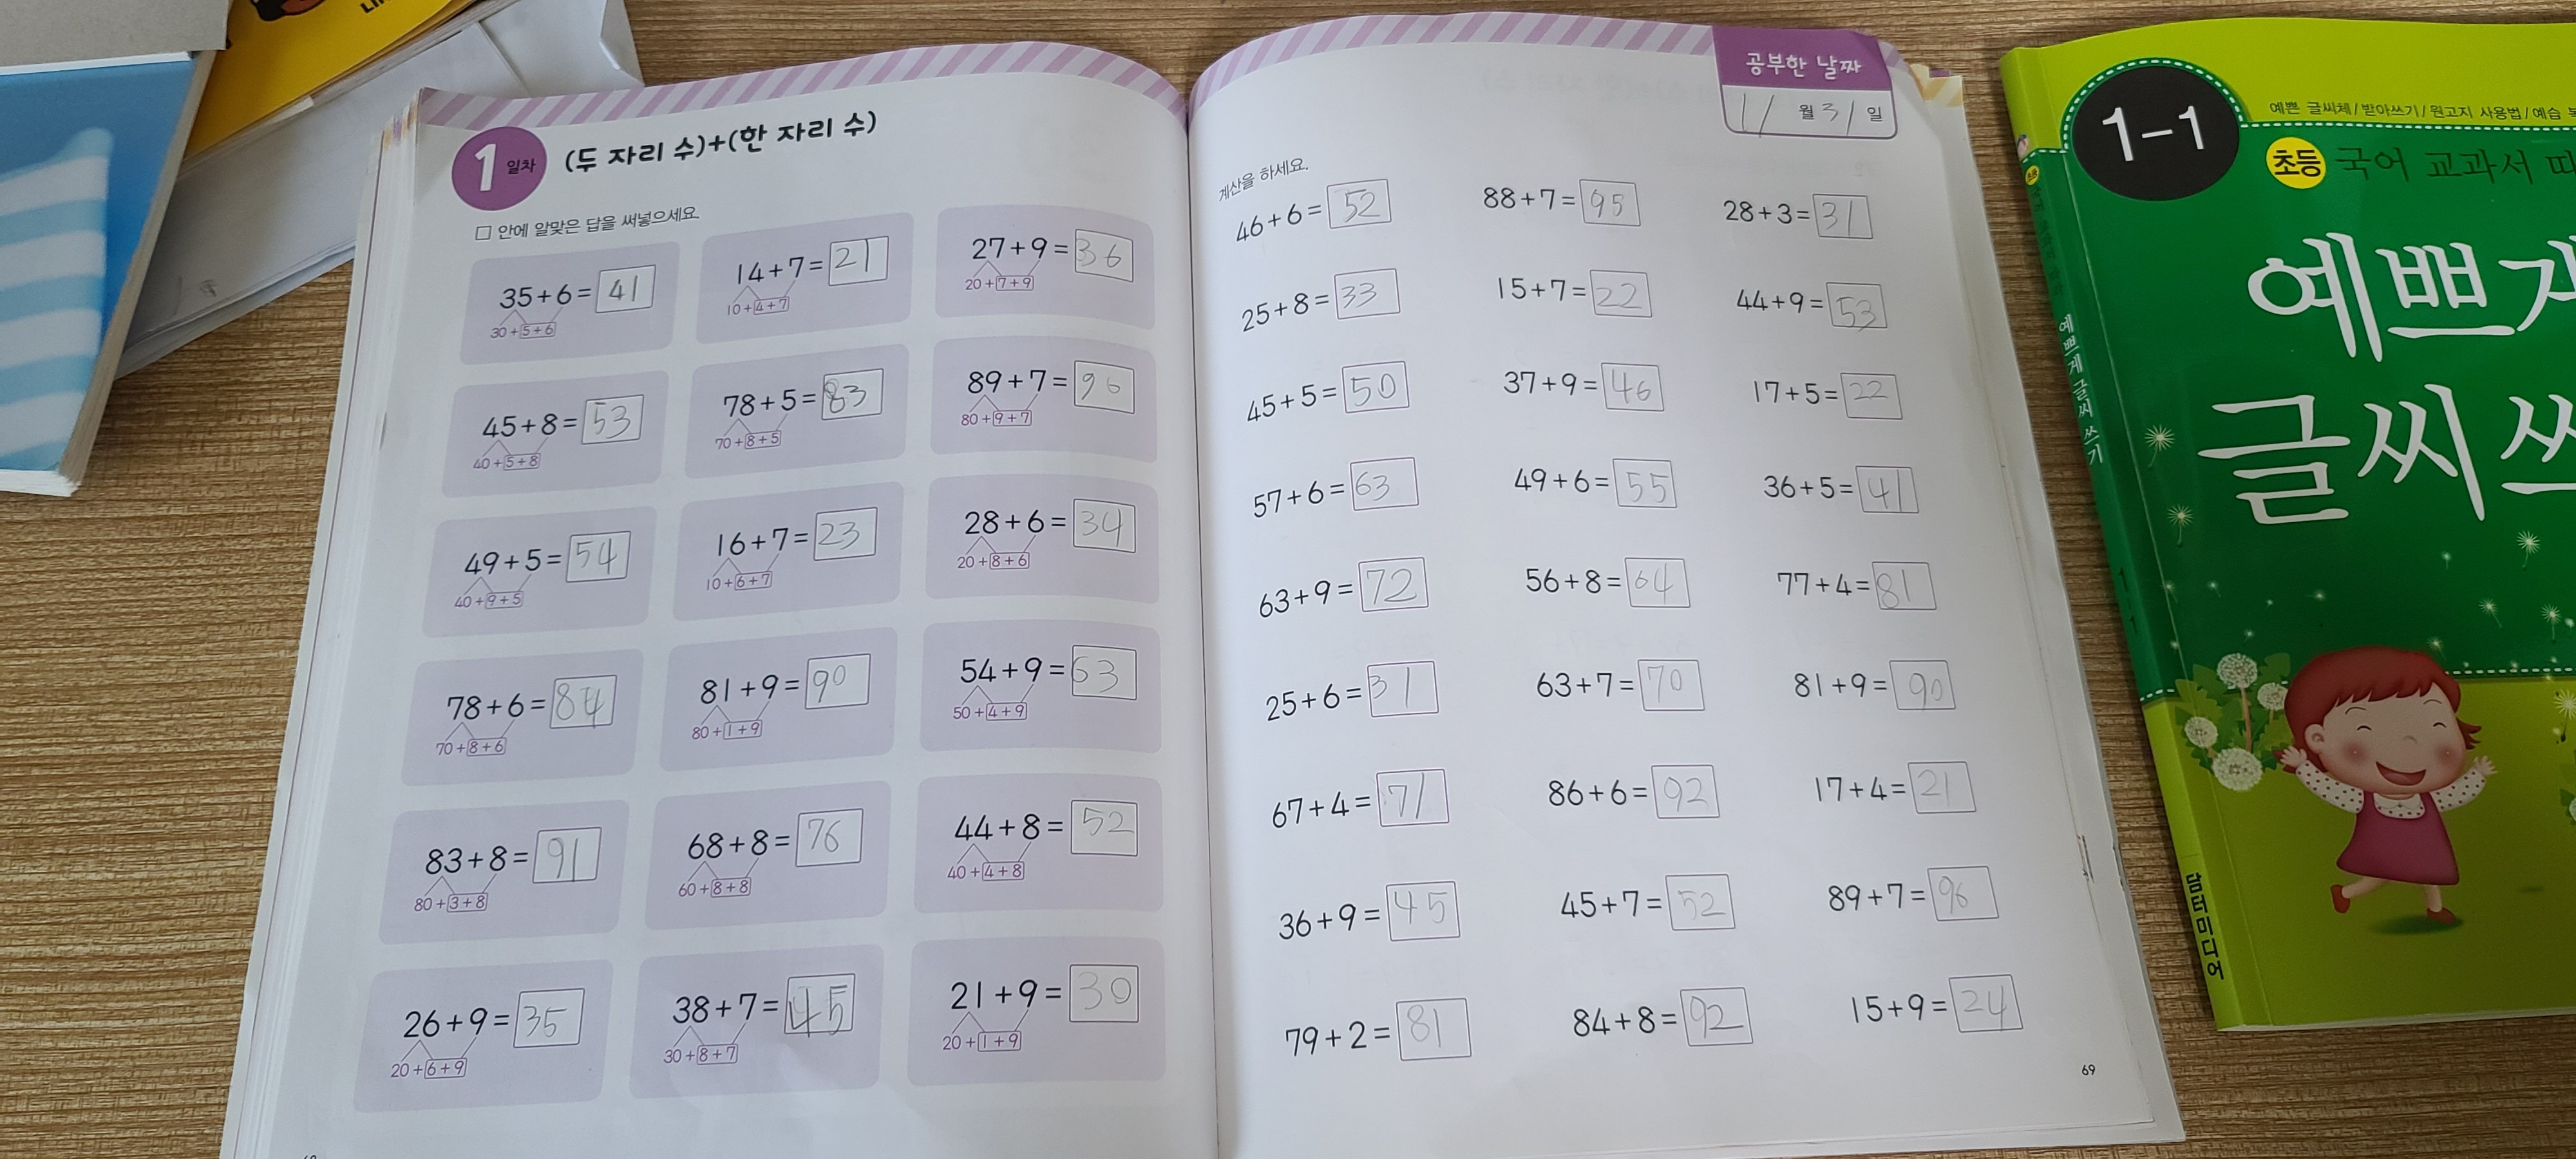 1 일차 (두 자리 수)+(한 자리 수)
□ 안에 알맞은 답을 써넣으세요.
35+6= 41
30+5+6
14+7= 21
10+4+7
27+9= 36
20+7+9
45+8= 53
40+5+8
78+5= 83
70+8+5
89+7= 96
80+9+7
49+5= 54
40+9+5
16+7= 23
10+6+7
28+6= 34
20+8+6
78+6= 84
70+8+6
81+9= 90
80+1+9
54+9= 63
50+4+9
83+8= 91
80+3+8
68+8= 76
60+8+8
44+8= 52
40+4+8
26+9= 35
20+6+9
38+7= 45
30+8+7
21+9= 30
20+1+9
공부한 날짜
11월 31일
계산을 하세요.
46+6= 52 88+7= 95 28+3= 31
25+8= 33 15+7= 22 44+9= 53
45+5= 50 37+9= 46 17+5= 22
57+6= 63 49+6= 55 36+5= 41
63+9= 72 56+8= 64 77+4= 81
25+6= 31 63+7= 70 81+9= 90
67+4= 71 86+6= 92 17+4= 21
36+9= 45 45+7= 52 89+7= 96
79+2= 81 84+8= 92 15+9= 24
69
1-1
예쁜 글씨체/받아쓰기/원고지 사용법/예습
초등 국어 교과서
예쁘게
글씨
예쁘게 글씨 쓰기
1-1
담터미디어